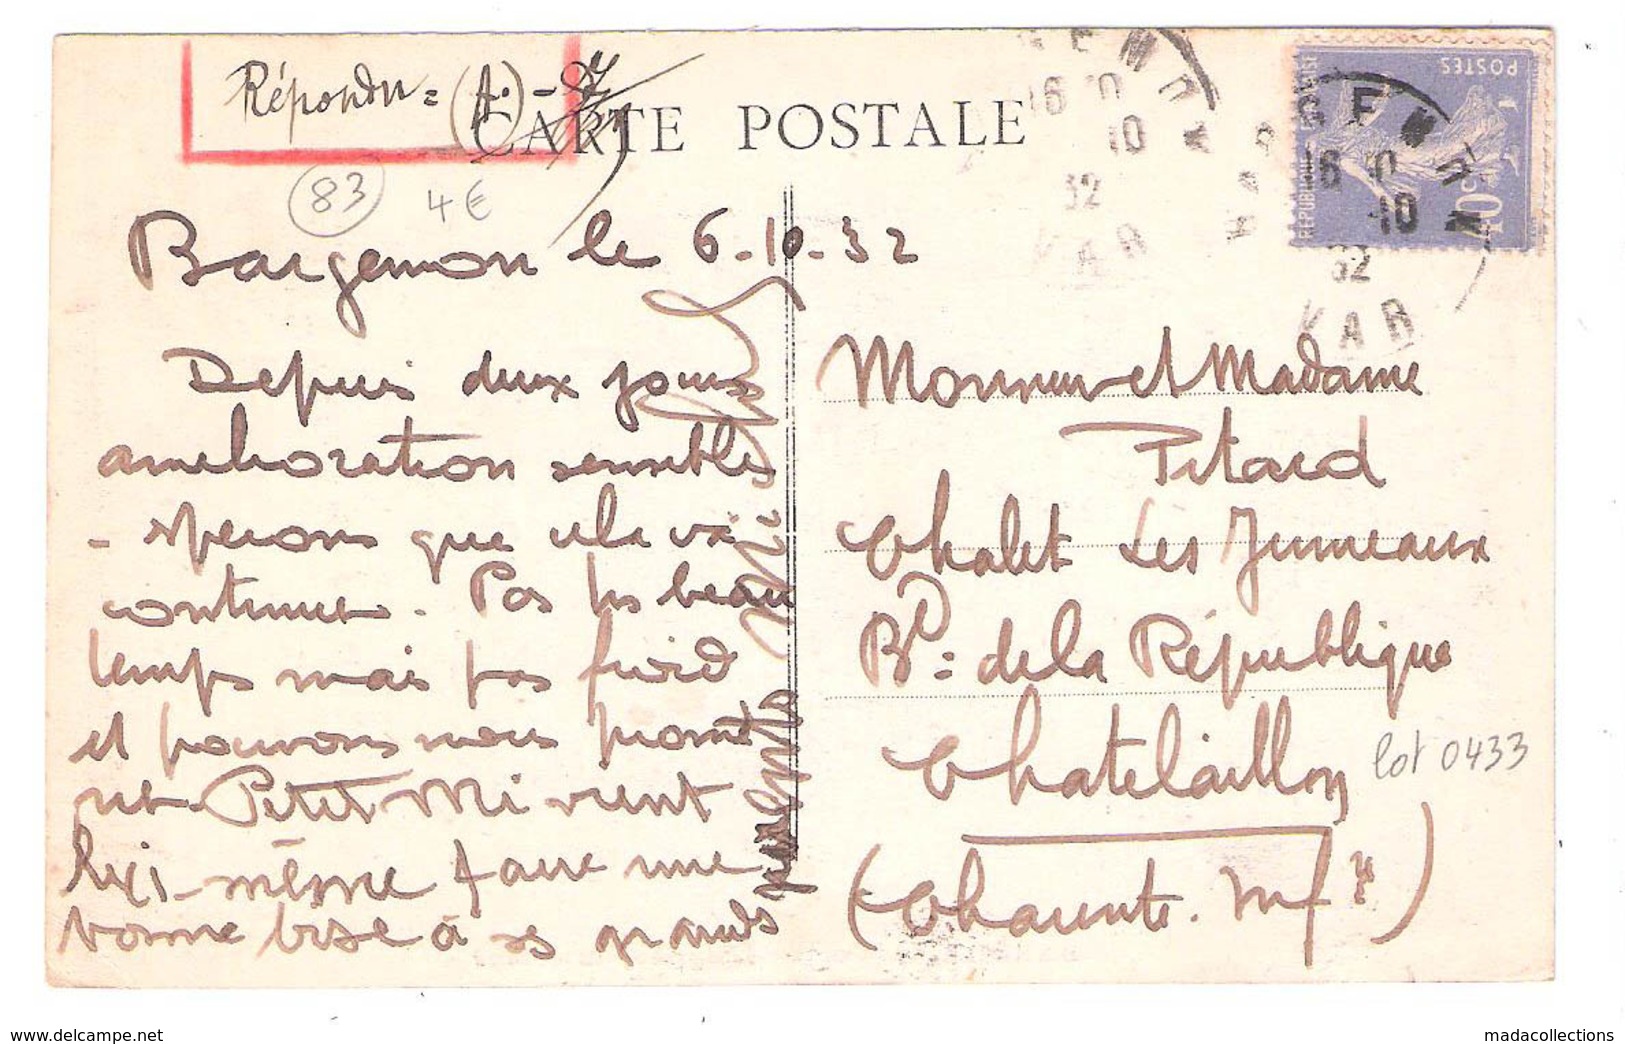 Répondu = (A.) - 7
CARTE POSTALE
83
4€
Bargemon le 6-10-32
Depuis deux jours
amélioration sensible
- espérons que cela va
continuer. Pas très beau
temps mais pas froid
et pouvons nous promet
Petit Mi vient
lui-même faire une
bonne bise à ses grands
parents
Monsieur et Madame
Pitard
Chalet Les Jumeaux
Bd = de la République
Chatelaillon
(Charente. Infre)
lot 0433
BARGEMON
16 10
10
32
VAR
BARGEMON
16 10
10
32
VAR
REPUBLIQUE FRANÇAISE
POSTES
40c
www.delcampe.net
madacollections